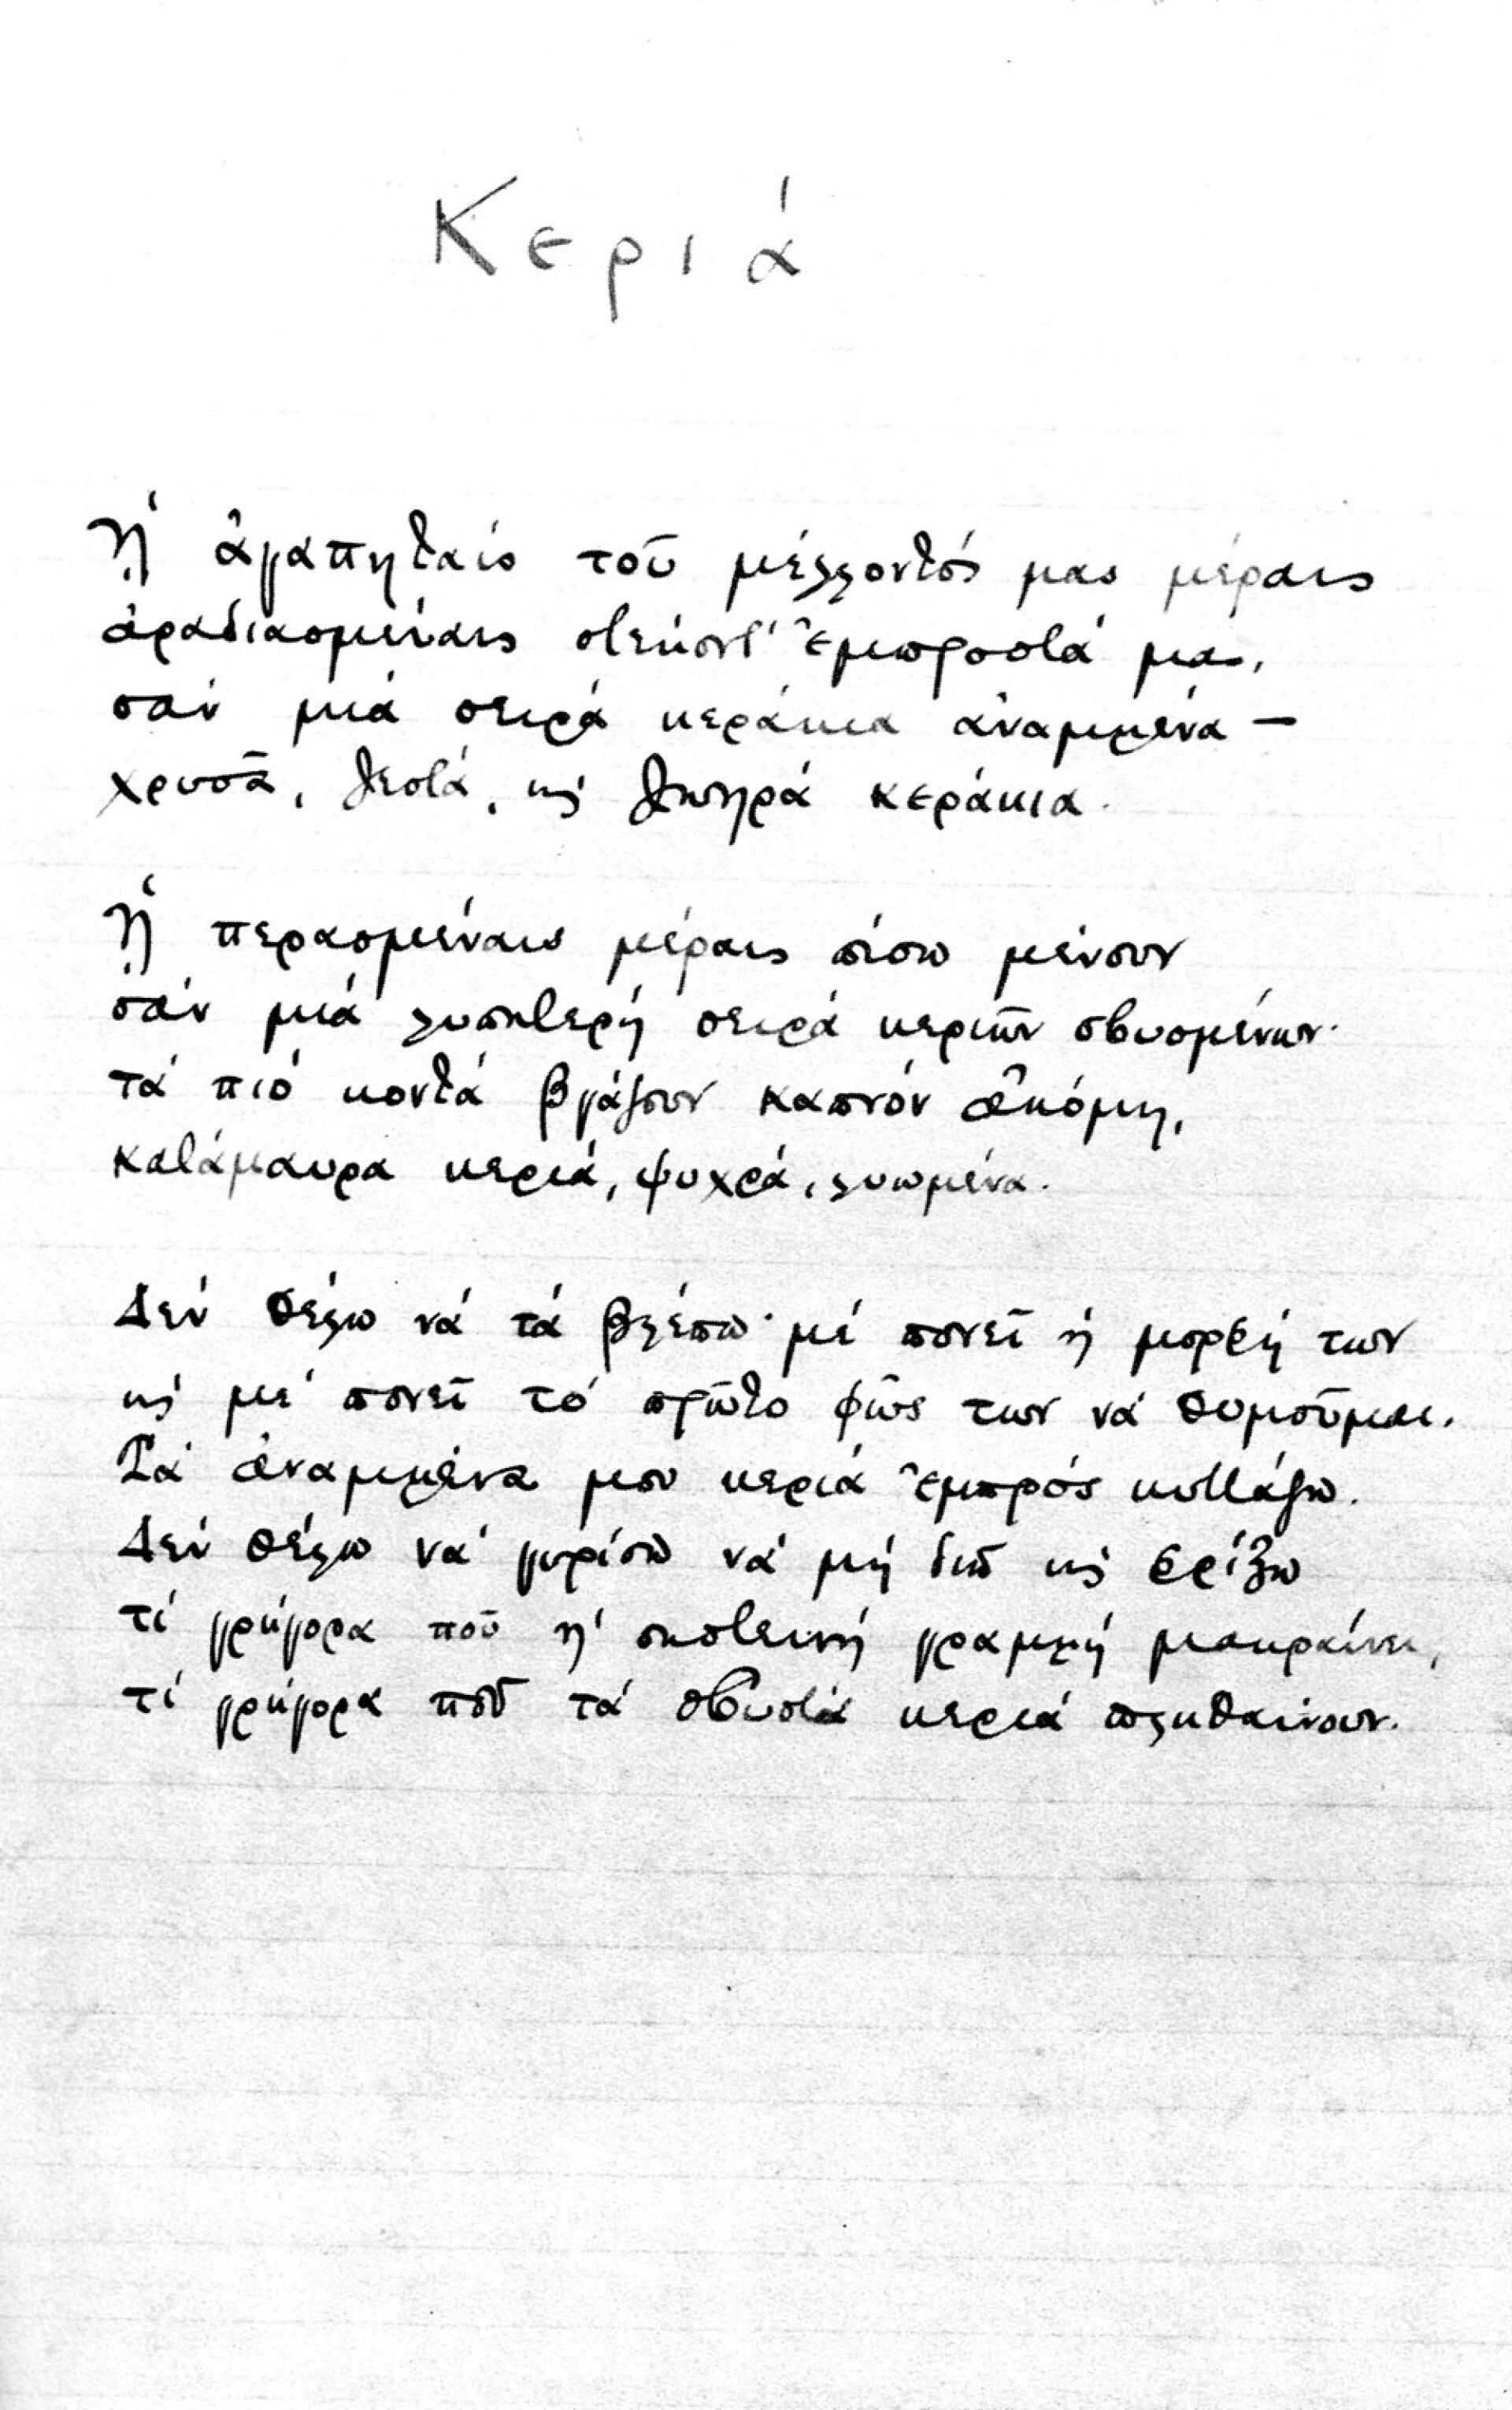 Κεριά
Ἡ ἀγαπηταὶς τοῦ μέλλοντός μας μέραις
ἀραδιασμέναις στέκοντ' ἐμπροστά μας,
σὰν μιὰ σειρὰ κεράκια ἀναμμένα —
χρυσᾶ, ζεστά, κὶ ζωηρὰ κεράκια.
Ἡ περασμέναις μέραις πίσω μένουν
σὰν μιὰ λυπητερὴ σειρὰ κεριῶν σβυσμένων·
τὰ πιὸ κοντὰ βγάζουν καπνὸν ἀκόμη,
κατάμαυρα κεριά, ψυχρά, λυωμένα.
Δὲν θέλω νὰ τὰ βλέπω· μὲ πονεῖ ἡ μορφή των
κὶ μὲ πονεῖ τὸ πρῶτο φῶς των νὰ θυμοῦμαι.
Τὰ ἀναμμένα μου κεριὰ ἐμπρὸς κυττάζω.
Δὲν θέλω νὰ γυρίσω νὰ μὴ διῶ κὶ φρίξω
τί γρήγορα ποῦ ἡ σκοτεινὴ γραμμὴ μακραίνει,
τί γρήγορα ποῦ τὰ σβυστὰ κεριὰ πληθαίνουν.